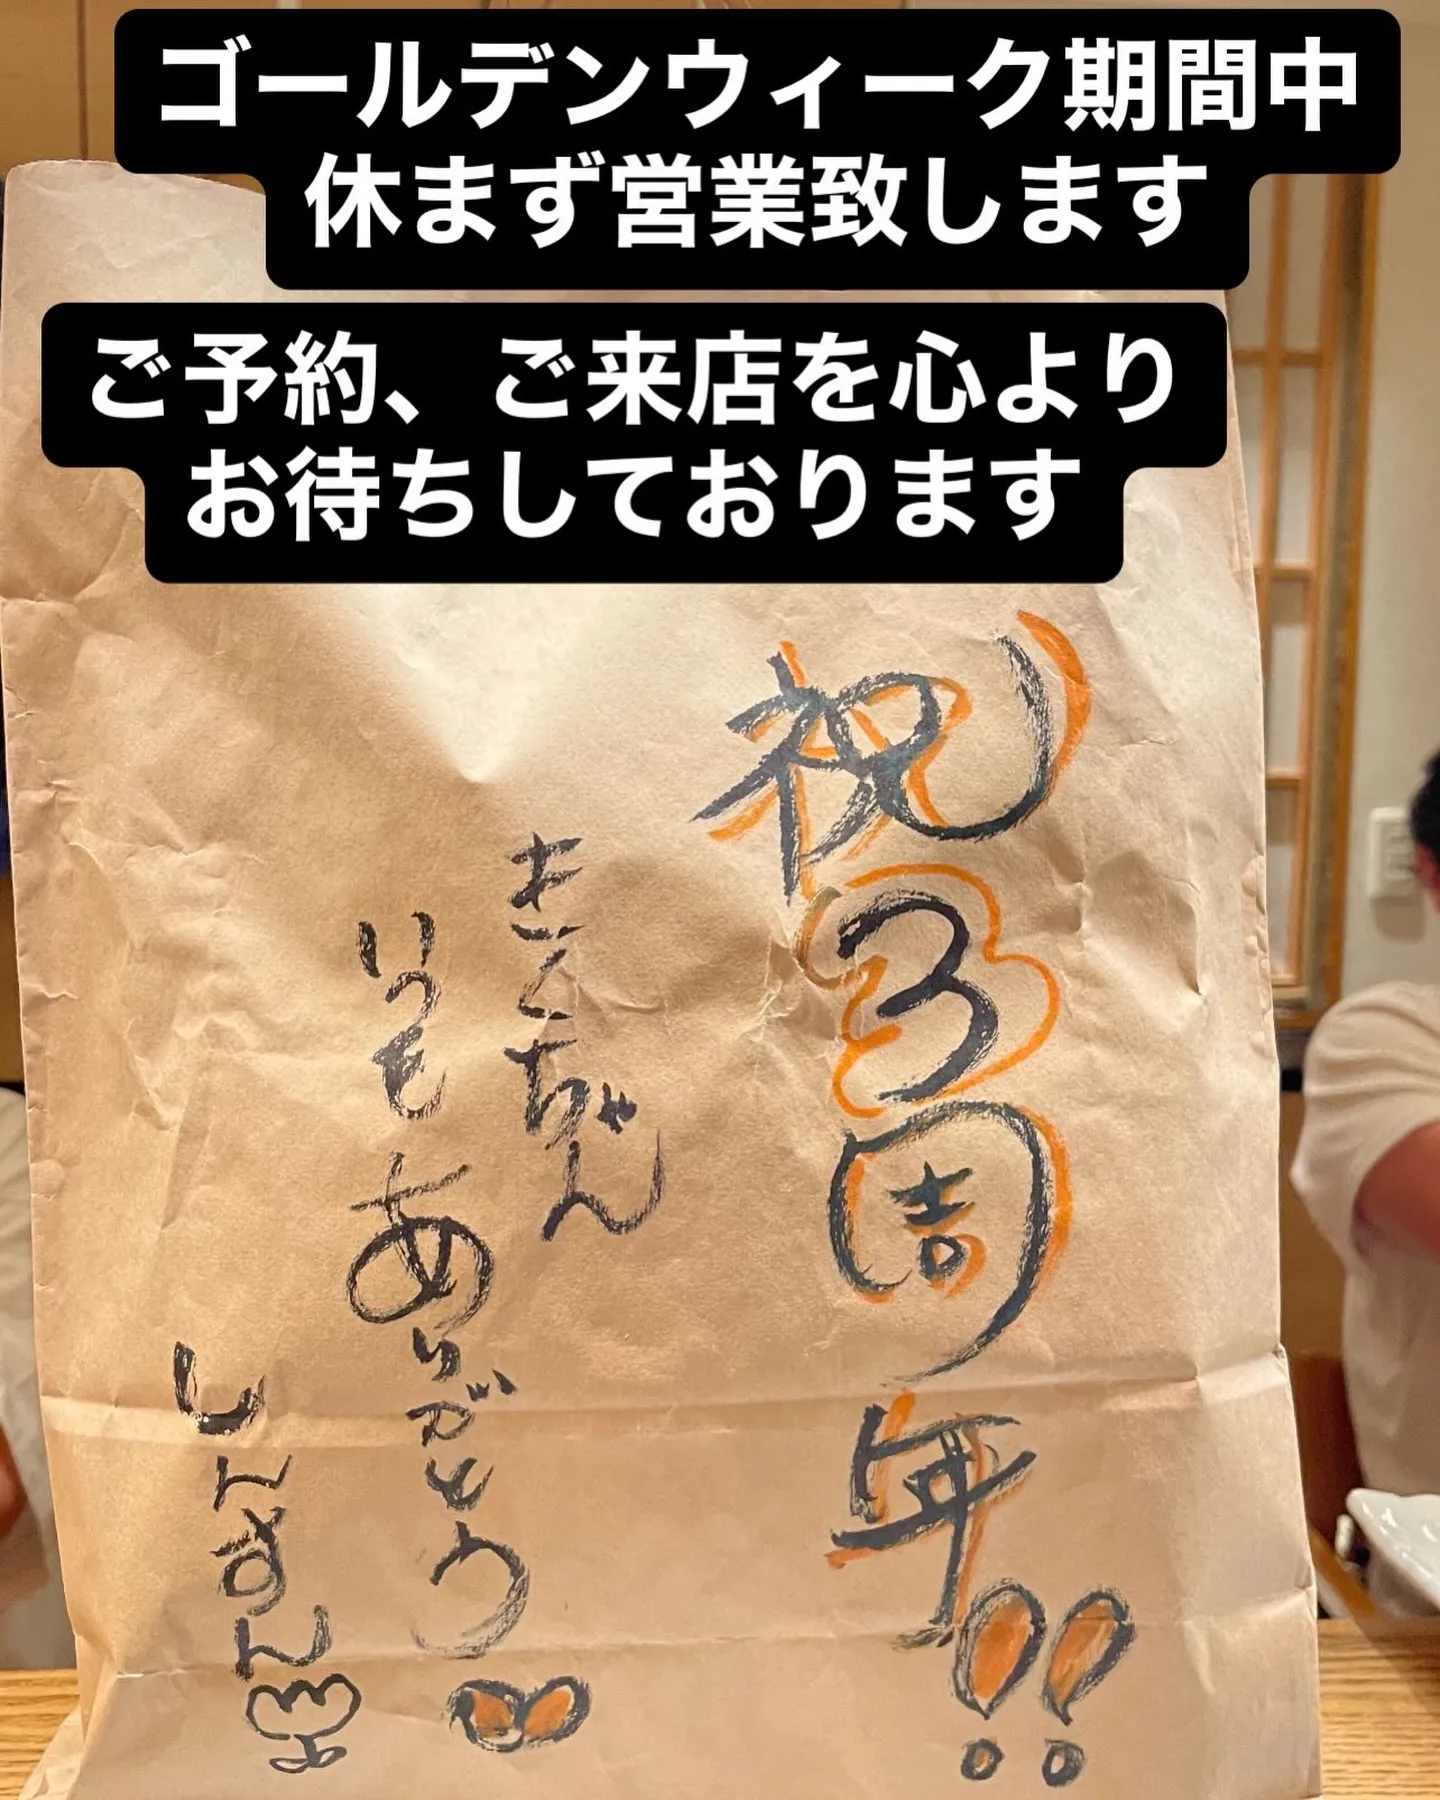 ゴールデンウィーク期間中
休まず営業致します
ご予約、ご来店を心より
お待ちしております
祝3周年!!
きくちゃん
いつもありがとう
しんすん